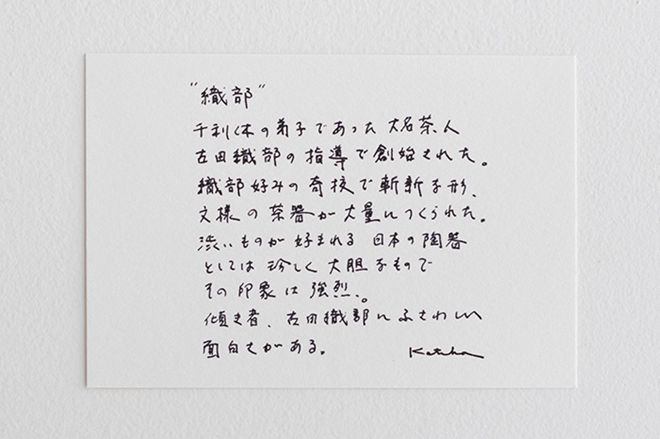 "織部"
千利休の弟子であった大名茶人
古田織部の指導で創始された。
織部好みの奇抜で斬新な形、
文様の茶器が大量につくられた。
渋いものが好まれる日本の陶器
としては珍しく大胆なもので
その印象は強烈。
傾き者、古田織部にふさわしい
面白さがある。